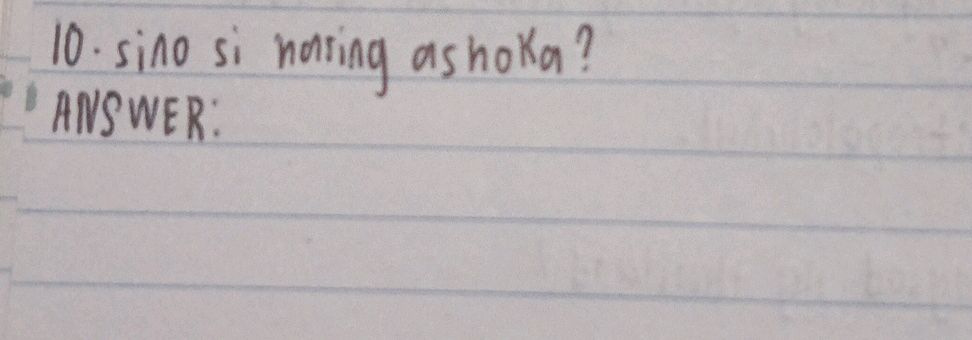 10. sino si haring ashoka?
ANSWER: